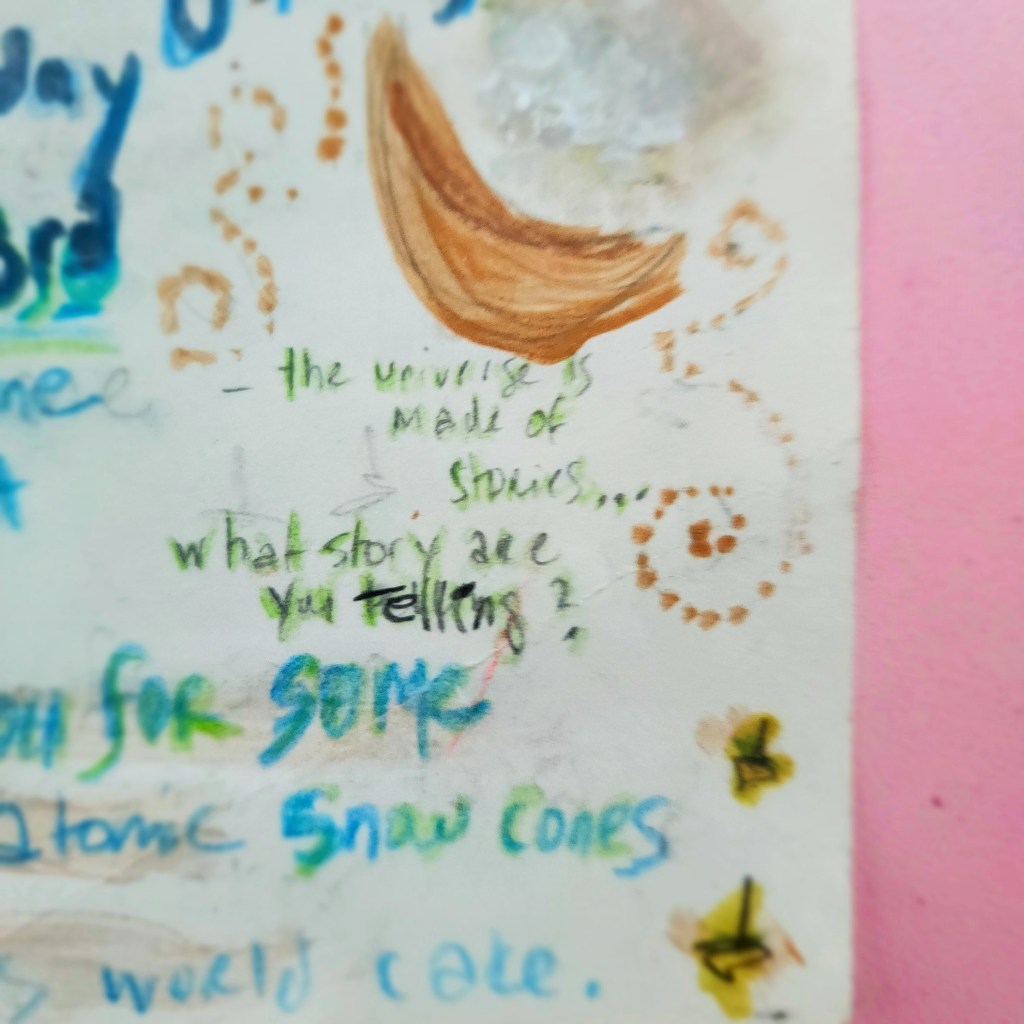 day
3rd
the universe is
made of
stories...
what story are
you telling?
for some
atomic snow cones
world cake.